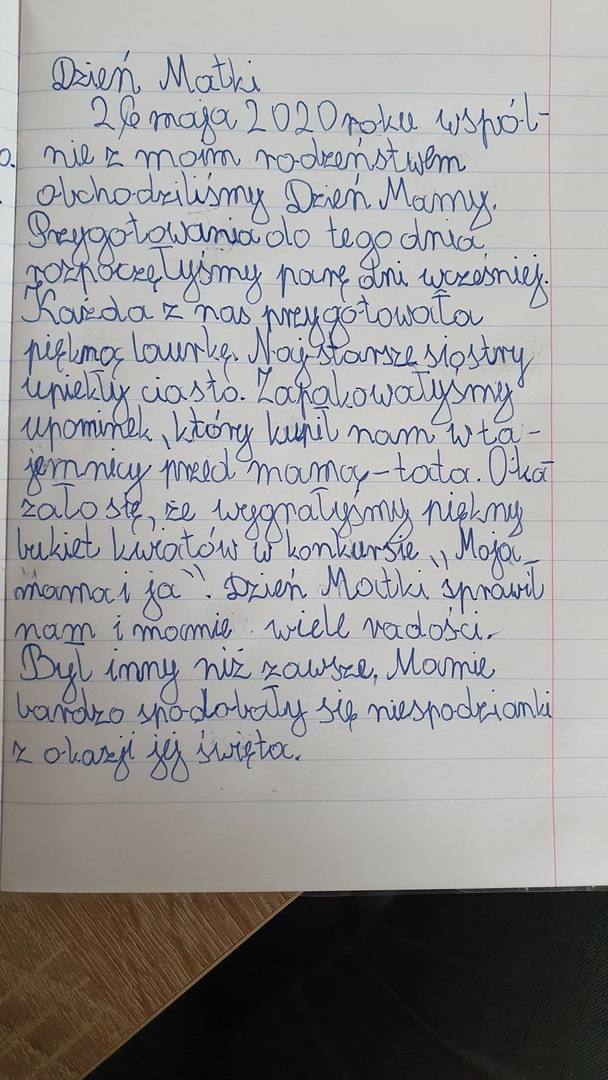 Dzień Matki
26 maja 2020 roku wspól-
nie z moim rodzeństwem
obchodziliśmy Dzień Mamy.
Przygotowania do tego dnia
rozpoczęłyśmy parę dni wcześniej.
Każda z nas przygotowała
piękną laurkę. Najstarsze siostry
upiekły ciasto. Zapakowałyśmy
upominek, który kupił nam w ta-
jemnicy przed mamą - tata. Oka
zało się, że wygrałyśmy piękny
bukiet kwiatów w konkursie „Moja
mama i ja". Dzień Matki sprawił
nam i mamie wiele radości.
Był inny niż zawsze. Mamie
bardzo spodobały się niespodzianki
z okazji jej święta.